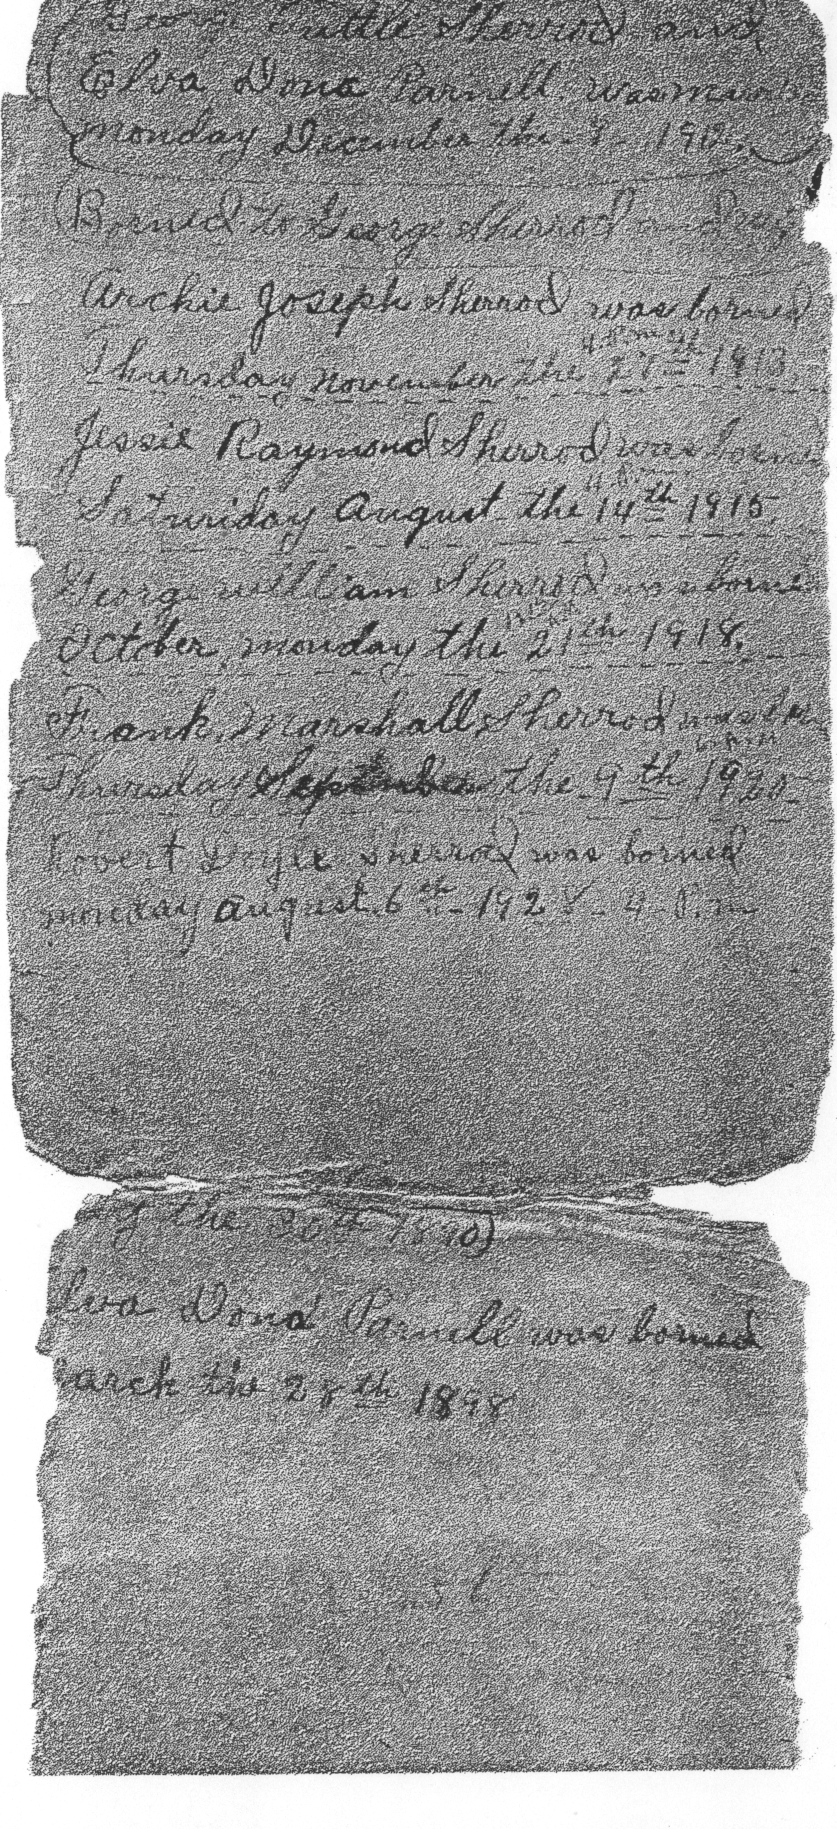 Tuttle Sherrod and
Elva Dona Parnell. was
monday December the
Borned to George Sherrod and
Archie Joseph Sherrod was borned
Thursday november the 27th 1913
Jessie Raymond Sherrod was borne
Saturiday August the 14th 1915
George william Sherrod was borne
October, monday the 21th 1918.
Frank, Marshall, Sherrod was
Thursday September the 9th 1920
Robert Doyle Sherrod was borned
monday August 6th 1928 - 4 P.m
the 30th
lva Dona Parnell was borned
arch the 28th 1898